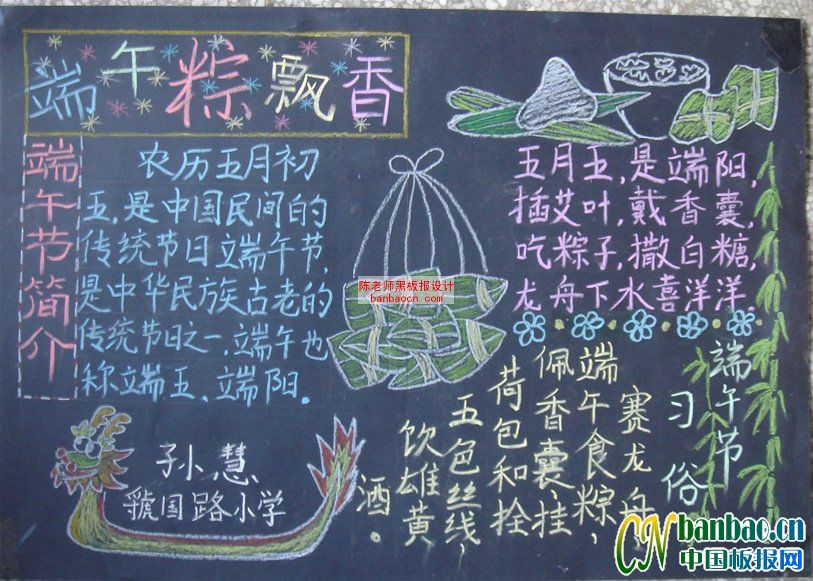 端午粽飘香
端午节简介
农历五月初
五,是中国民间的
传统节日端午节,
是中华民族古老的
传统节日之一,端午也
称端五,端阳.
孙慧
虢国路小学
陈老师黑板报设计
banbaocn.com
五月五,是端阳,
插艾叶,戴香囊,
吃粽子,撒白糖,
龙舟下水喜洋洋
端午节
习俗
赛龙舟
端午食粽,
佩香囊,挂
荷包和拴
五色丝线,
饮雄黄
酒。
CN banbao.cn
中国板报网